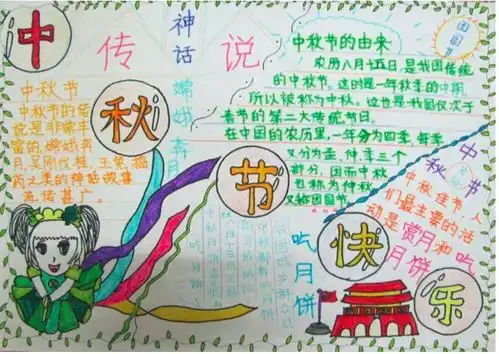 中
传
神话
说
团圆节
中秋节的由来
农历八月十五日,是我国传统
的中秋节。这时是一年秋季的中期,
所以被称为中秋。这也是我国仅次于
春节的第二大传统节日。
在中国的农历里,一年分为四季,每季
又分为孟、仲、季三个
部分,因而中秋
也称为仲秋
又叫团圆节。
中秋节
中秋节的传
说是非常丰
富的,嫦娥奔
月,吴刚伐桂,玉兔捣
药之类的神话故事
流传甚广。
嫦娥奔月
秋
节
快
乐
中秋节
中秋佳节,人
们最主要的活
动是赏月和吃
月饼
吃月饼